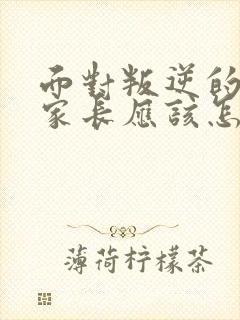 而對叛逆的
家長應該怎
薄荷柠檬茶